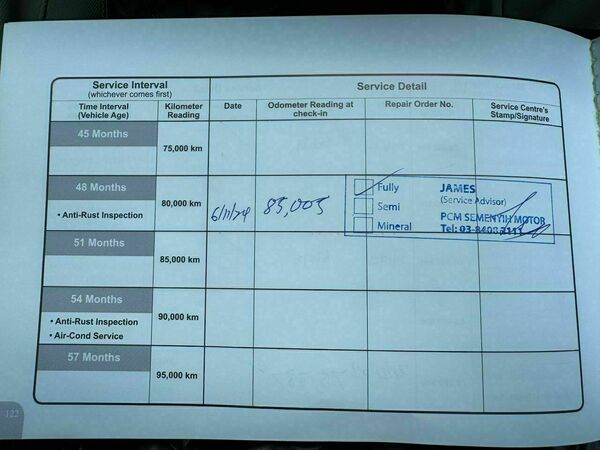 Service Interval
(whichever comes first)
Service Detail
Time Interval
(Vehicle Age)
Kilometer
Reading
Date
Odometer Reading at
check-in
Repair Order No.
Service Centre's
Stamp/Signature
45 Months
75,000 km
48 Months
• Anti-Rust Inspection
80,000 km
6/11/24
85,005
Fully
Semi
Mineral
JAMES
(Service Advisor)
PCM SEMENYIH MOTOR
Tel: 03-8408 2111
51 Months
85,000 km
54 Months
• Anti-Rust Inspection
• Air-Cond Service
90,000 km
57 Months
95,000 km
122